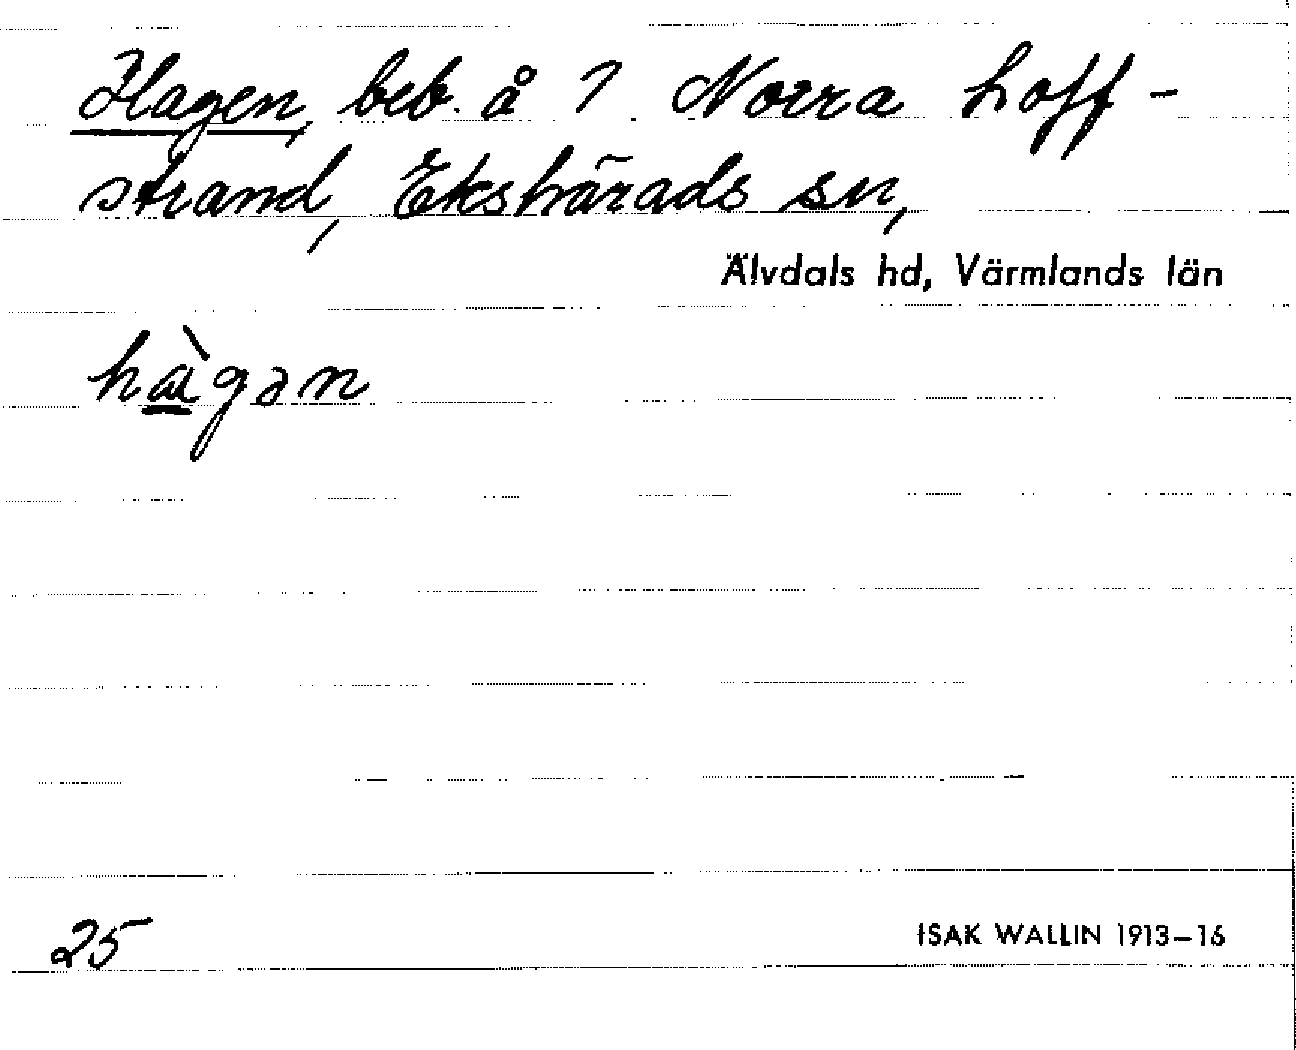 Hagen, beb. å 1 Norra Loff-
strand, Ekshärads sn,
Älvdals hd, Värmlands län
hàgən
25
ISAK WALLIN 1913-16